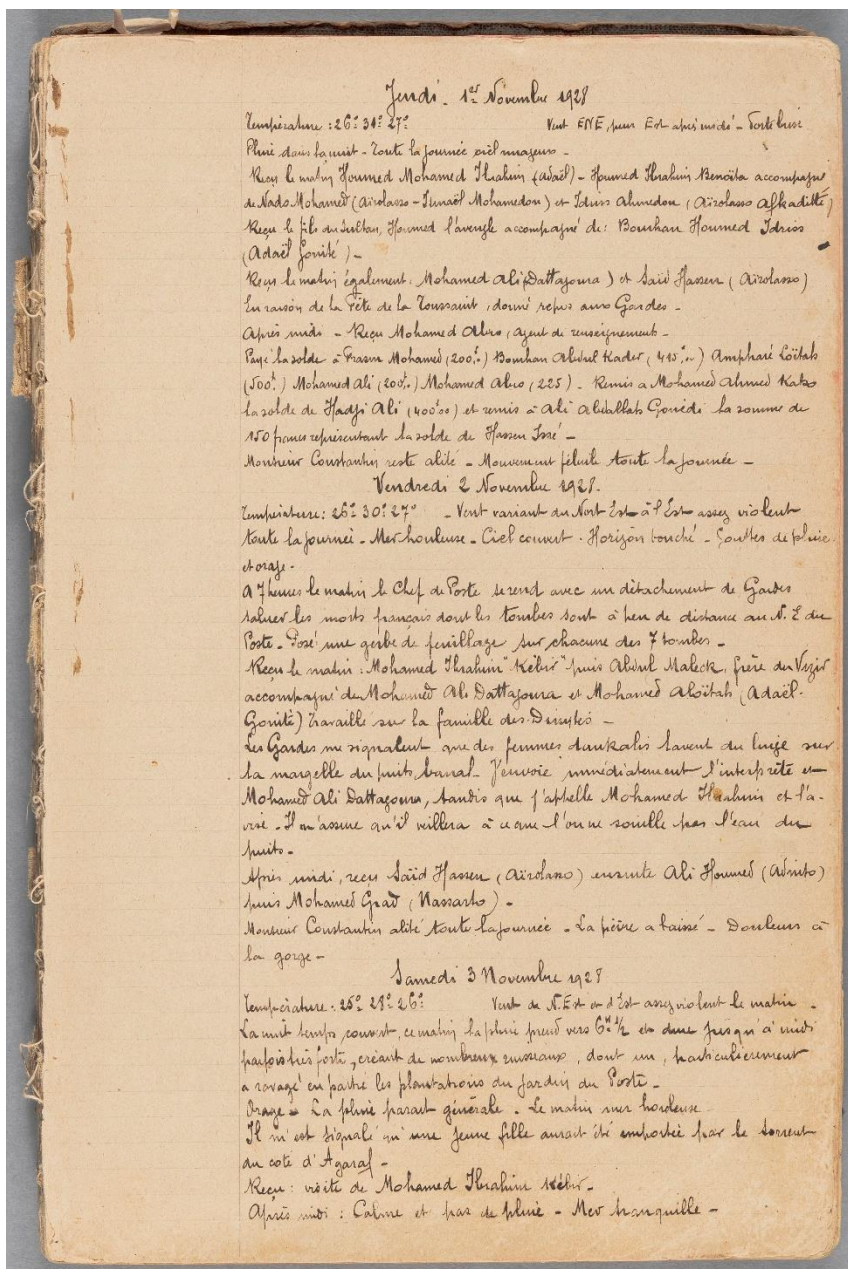 Jeudi - 1er Novembre 1928
Température : 26° 31° 27° Vent ENE, puis Est après midi - Forte brise
Pluie dans la nuit - Toute la journée ciel nuageux -
Reçu le matin Houmed Mohamed Ibrahim (Adaël) - Houmed Ibrahim Benoïta accompagné
de Nado Mohamed (Aïrolasso - Ismaël Mohamedou) et Idriss Ahmedou (Aïrolasso Afkaditté)
Reçu le fils du Sultan, Houmed l'aveugle accompagné de : Bourhan Houmed Idriss
(Adaël Gonité) -
Reçu le matin également : Mohamed Ali (Dattagoura) et Saïd Hassen (Aïrolasso)
En raison de la Fête de la Toussaint, donné repos aux Gardes -
Après midi - Reçu Mohamed Abro, agent de renseignements -
Payé la solde à Mohamed (200f) Bourhan Abdul Kader, (415f,00) Ampharé Loïtah
(500f) Mohamed Ali (200f) Mohamed Abro (225) - Remis à Mohamed Ahmed Kako
la solde de Hadji Ali (400f00) et remis à Ali Abdallah Gouédi la somme de
150 francs représentant la solde de Hassen Issé -
Monsieur Constantin reste alité - Mouvement fébrile toute la journée -
Vendredi 2 Novembre 1928.
Température : 26° 30° 27° - Vent variant du Nort Est à l'Est assez violent
toute la journée - Mer houleuse - Ciel couvert - Horizon bouché - Gouttes de pluie
et orage -
A 7 heures le matin le Chef de Poste se rend avec un détachement de Gardes
saluer les morts français dont les tombes sont à peu de distance au N.E du
Poste - Posé une gerbe de feuillage sur chacune des 7 tombes -
Reçu le matin : Mohamed Ibrahim "Kébir" puis Abdul Maleck, frère du Vezir
accompagné de Mohamed Ali Dattagoura et Mohamed Aloïtah (Adaël-
Gonité) Travaille sur la famille des -
Les Gardes me signalent que des femmes dankalis lavent du linge sur
la margelle du puits banal - J'envoie immédiatement l'interprète et
Mohamed Ali Dattagoura, tandis que j'appelle Mohamed Ibrahim et l'a-
vise - Il m'assure qu'il veillera à ce que l'on ne souille pas l'eau du
puits -
Après midi, reçu Saïd Hassen (Aïrolasso) ensuite Ali Houmed (Adnito)
puis Mohamed Grad (Hassarto) -
Monsieur Constantin alité toute la journée - La fièvre a baissé - Douleurs à
la gorge -
Samedi 3 Novembre 1928
Température : 25° 28° 26° Vent de N.Est et d'Est assez violent le matin -
La nuit temps couvert, ce matin la pluie prend vers 6H 1/2 et dure jusqu'à midi
parfois très forte, créant de nombreux ruisseaux, dont un, particulièrement
a ravagé en partie les plantations du jardin du Poste -
Orage - La pluie parait générale - Le matin mer houleuse
Il m'est signalé qu'une jeune fille aurait été emportée par le torrent
du coté d'Agaraf -
Reçu : visite de Mohamed Ibrahim Kébir -
Après midi : Calme et pas de pluie - Mer tranquille -